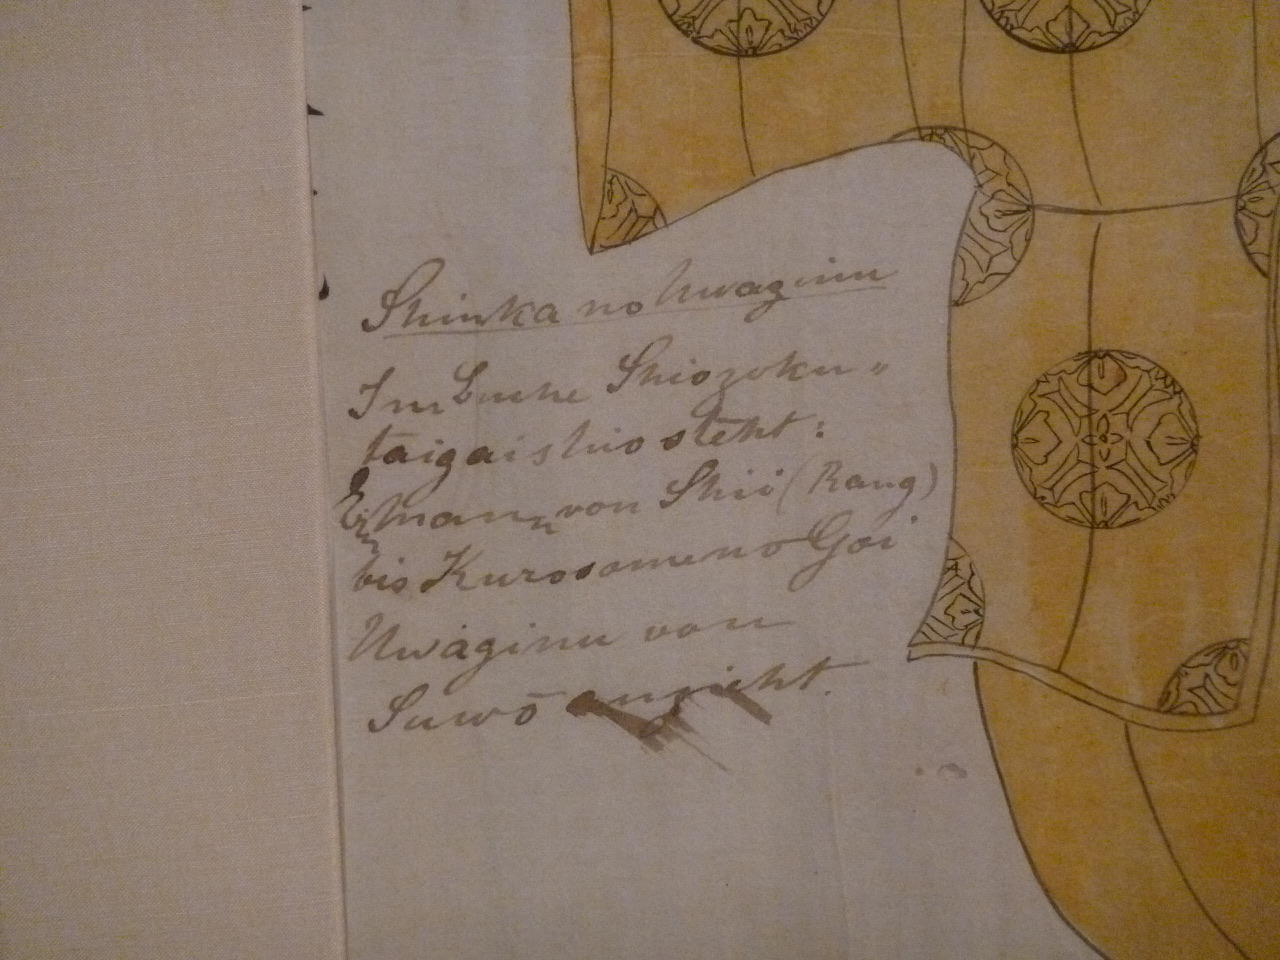 Shinka no Uwaginu
Im Buche Shiozoku=
taigaishio steht:
Ein Mann von Shii (Rang)
bis Kurosome no Goi
Uwaginu von
Suwō anzieht.